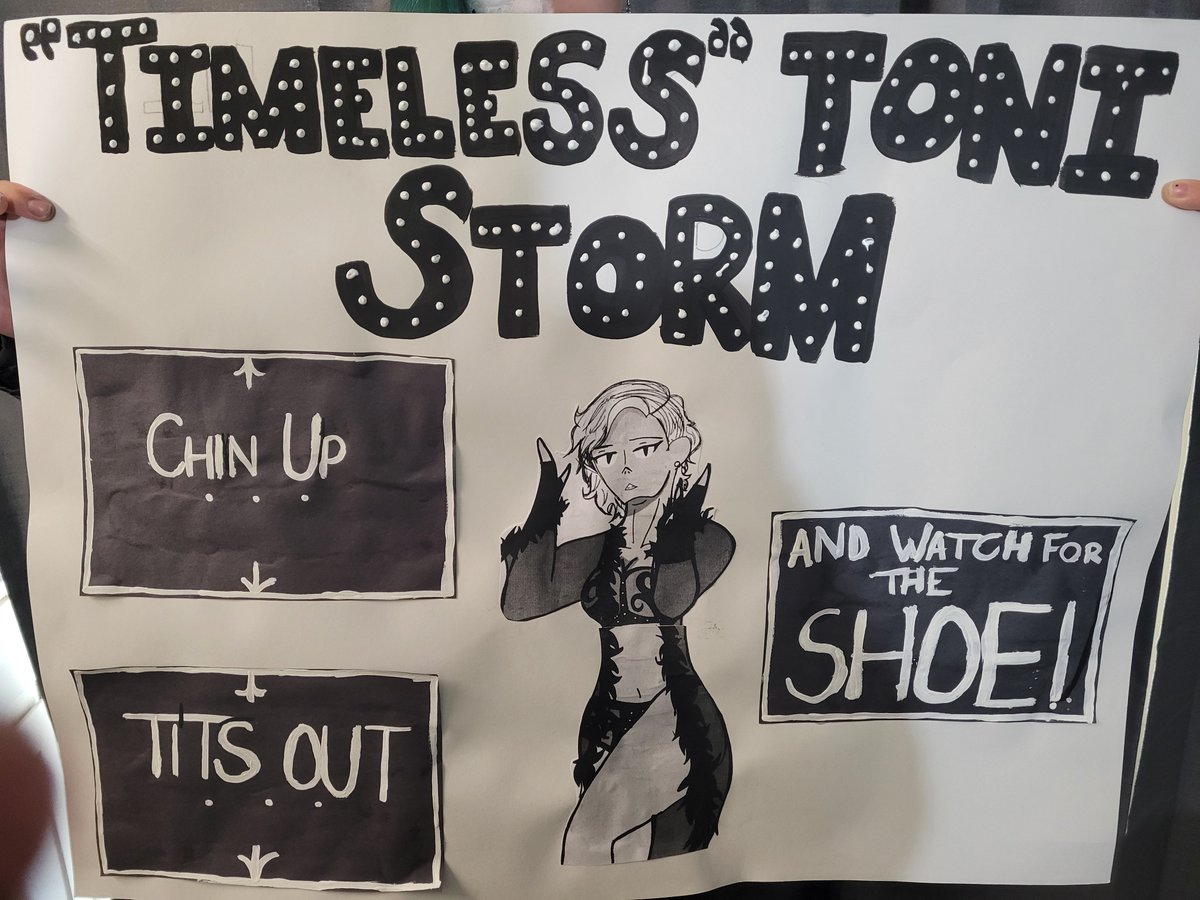 "TIMELESS" TONI
STORM
CHIN UP
. . .
TITS OUT
. . .
AND WATCH FOR
THE
SHOE!